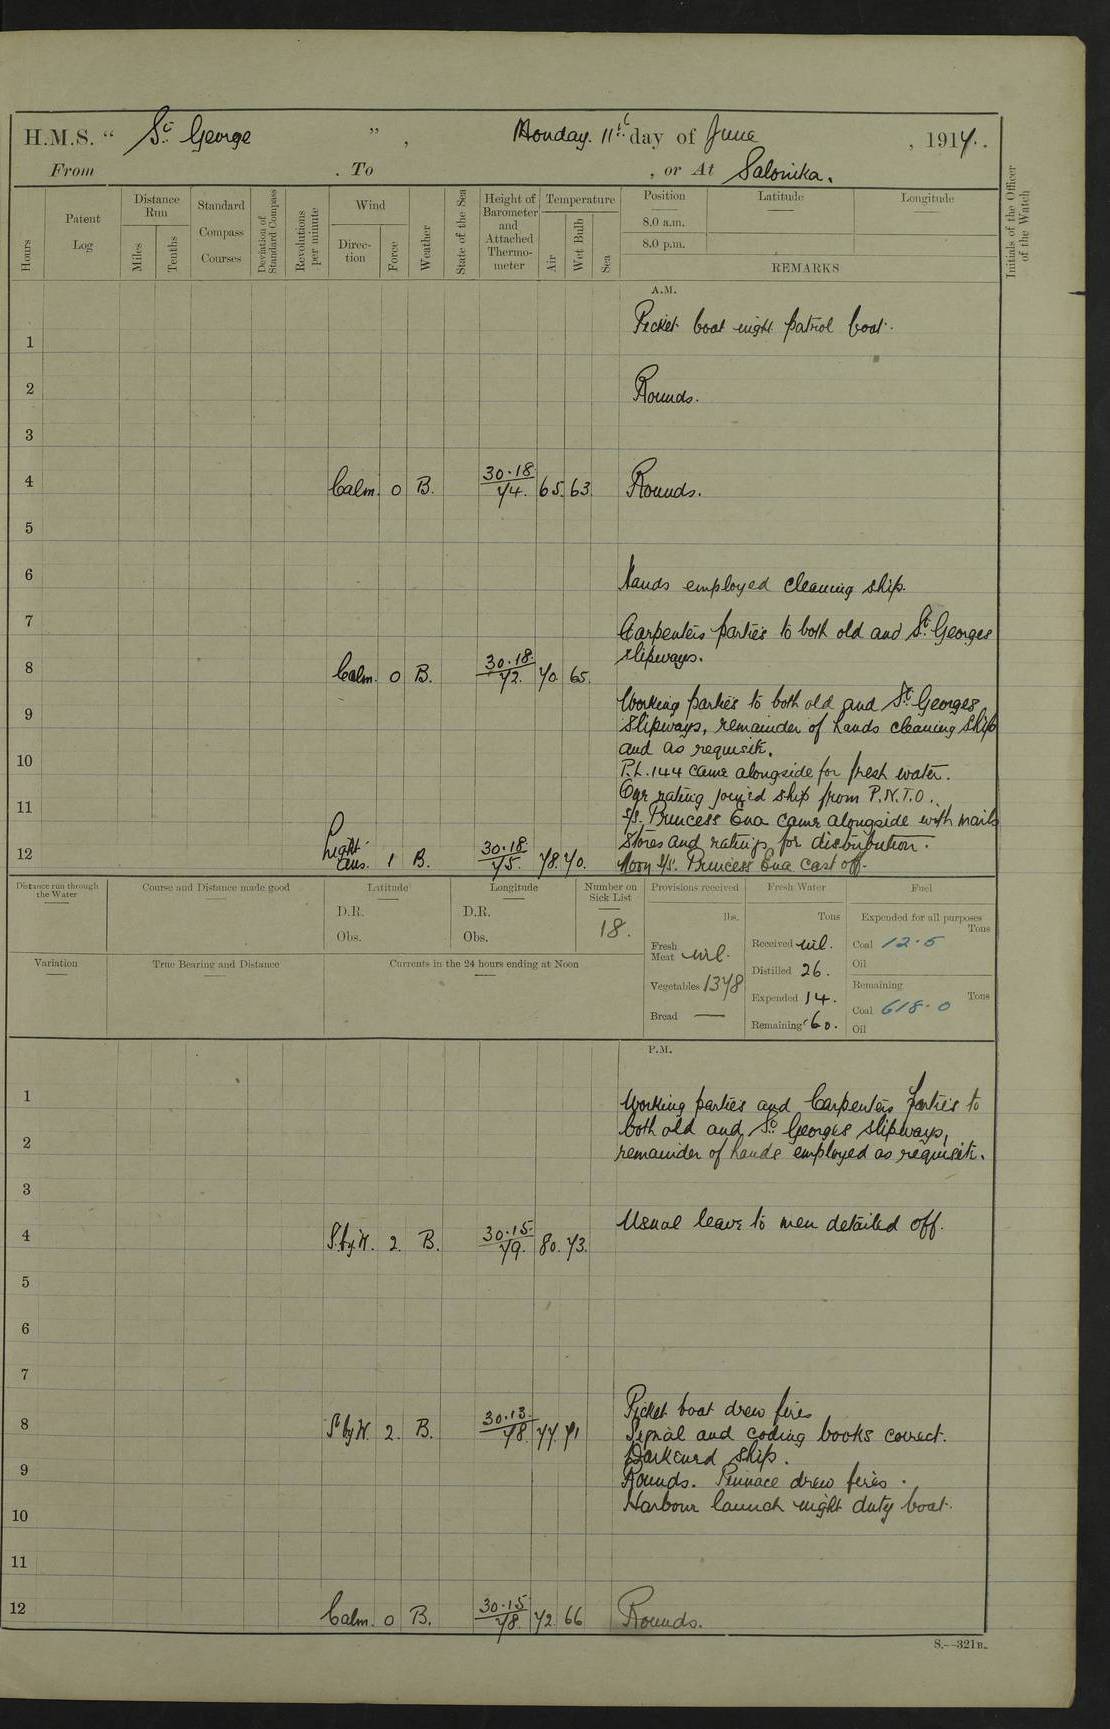 H.M.S. “ St George ” , Monday. 11th day of June , 1917.
From . To , or At Salonika.
Hours
Patent Log
Distance Run
Miles
Tenths
Standard Compass Courses
Deviation of Standard Compass
Revolutions per minute
Wind
Direction
Force
Weather
State of the Sea
Height of Barometer and Attached Thermometer
Temperature
Air
Wet Bulb
Sea
Position
Latitude
Longitude
8.0 a.m.
8.0 p.m.
REMARKS
Initials of the Officer of the Watch
A.M.
Picket boat night patrol boat.
1
2 Rounds.
3
4 Calm. 0 B. 30.18/74. 65. 63. Rounds.
5
6 Hands employed cleaning ship.
7 Carpenters parties to both old and St Georges
slipways.
8 Calm. 0 B. 30.18/72. 70. 65.
Working parties to both old and St Georges
9 slipways, remainder of hands cleaning ship
and as requisite.
10 P.L. 144 came alongside for fresh water.
One rating joined ship from P.N.T.O.
11 s/s. Princess Ena came alongside with mails
stores and ratings for distribution.
12 Light airs. 1 B. 30.18/75. 78. 70. Noon s/s. Princess Ena cast off.
Distance run through the Water
Course and Distance made good
Latitude
D.R.
Obs.
Longitude
D.R.
Obs.
Number on Sick List
18.
Provisions received
lbs.
Fresh Meat nil.
Vegetables 1378
Bread —
Fresh Water
Tons
Received nil.
Distilled 26.
Expended 14.
Remaining 60.
Fuel
Expended for all purposes
Tons
Coal 12.5
Oil
Remaining
Tons
Coal 618.0
Oil
Variation
True Bearing and Distance
Currents in the 24 hours ending at Noon
P.M.
1 Working parties and Carpenters parties to
both old and St Georges slipways,
2 remainder of hands employed as requisite.
3
Usual leave to men detailed off.
4 S.byW. 2. B. 30.15/79. 80. 73.
5
6
7
Picket boat drew fires
8 S byW. 2. B. 30.13/78. 77. 71 Signal and coding books correct.
Darkened ship.
9 Rounds. Pinnace drew fires.
Harbour launch night duty boat.
10
11
12 Calm. 0 B. 30.15/78. 72 66 Rounds.
S.—321B.